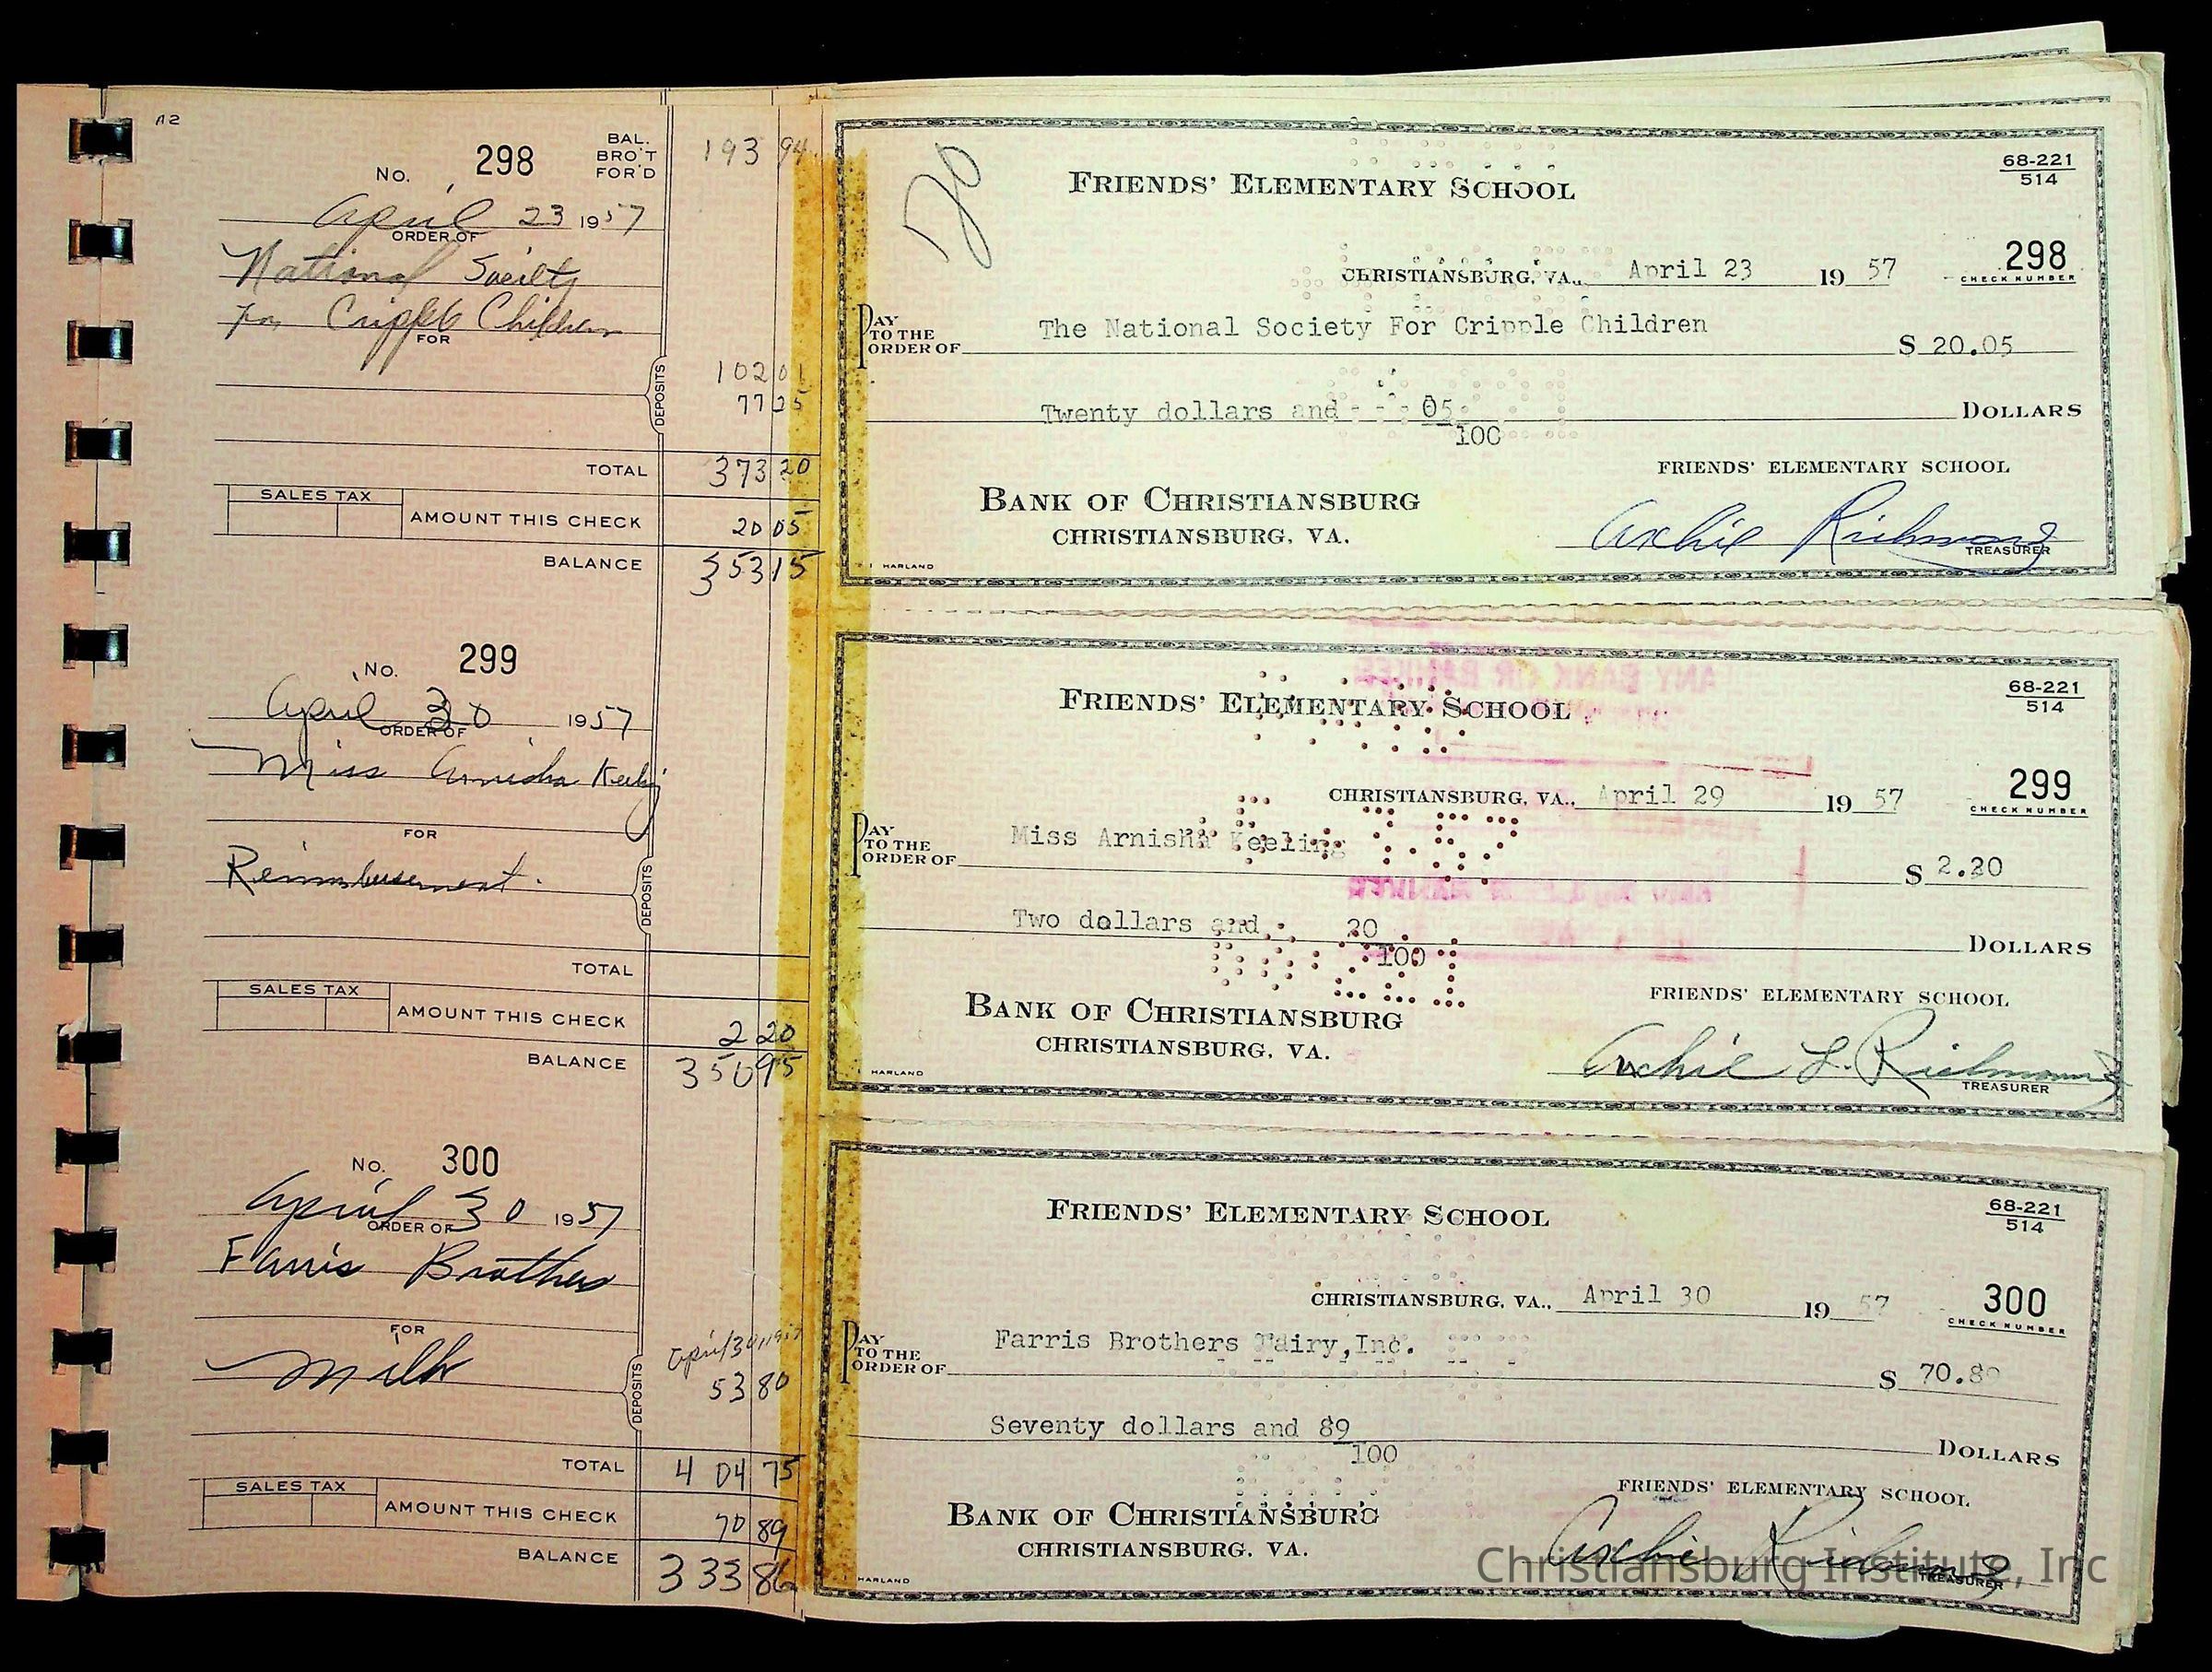 A2
No. 298
BAL. BRO'T FOR'D 193 94
April 23 1957
ORDER OF
National Society
For Cripple Children
FOR
DEPOSITS
102 01
77 25
TOTAL 373 20
SALES TAX
AMOUNT THIS CHECK 20 05
BALANCE 353 15
No. 299
April 30 1957
ORDER OF
Miss Arnisha Keeling
FOR
Reimbursement.
DEPOSITS
TOTAL
SALES TAX
AMOUNT THIS CHECK 2 20
BALANCE 350 95
No. 300
April 30 1957
ORDER OF
Farris Brothers
FOR
Milk
April 30, 1957
DEPOSITS
53 80
TOTAL 404 75
SALES TAX
AMOUNT THIS CHECK 70 89
BALANCE 333 86
20
FRIENDS' ELEMENTARY SCHOOL
68-221
514
CHRISTIANSBURG, VA., April 23 19 57
298
CHECK NUMBER
PAY TO THE ORDER OF The National Society For Cripple Children $ 20.05
Twenty dollars and - - - 05 DOLLARS
100
FRIENDS' ELEMENTARY SCHOOL
BANK OF CHRISTIANSBURG
CHRISTIANSBURG, VA.
Archie Richmond
TREASURER
HARLAND
FRIENDS' ELEMENTARY SCHOOL
68-221
514
CHRISTIANSBURG, VA., April 29 19 57
299
CHECK NUMBER
PAY TO THE ORDER OF Miss Arnisha Keeling $ 2.20
Two dollars and 20 DOLLARS
100
FRIENDS' ELEMENTARY SCHOOL
BANK OF CHRISTIANSBURG
CHRISTIANSBURG, VA.
Archie L. Richmond
TREASURER
HARLAND
FRIENDS' ELEMENTARY SCHOOL
68-221
514
CHRISTIANSBURG, VA., April 30 19 57
300
CHECK NUMBER
PAY TO THE ORDER OF Farris Brothers Dairy, Inc. $ 70.89
Seventy dollars and 89 DOLLARS
100
FRIENDS' ELEMENTARY SCHOOL
BANK OF CHRISTIANSBURG
CHRISTIANSBURG, VA.
Archie Richmond
TREASURER
HARLAND
Christiansburg Institute, Inc